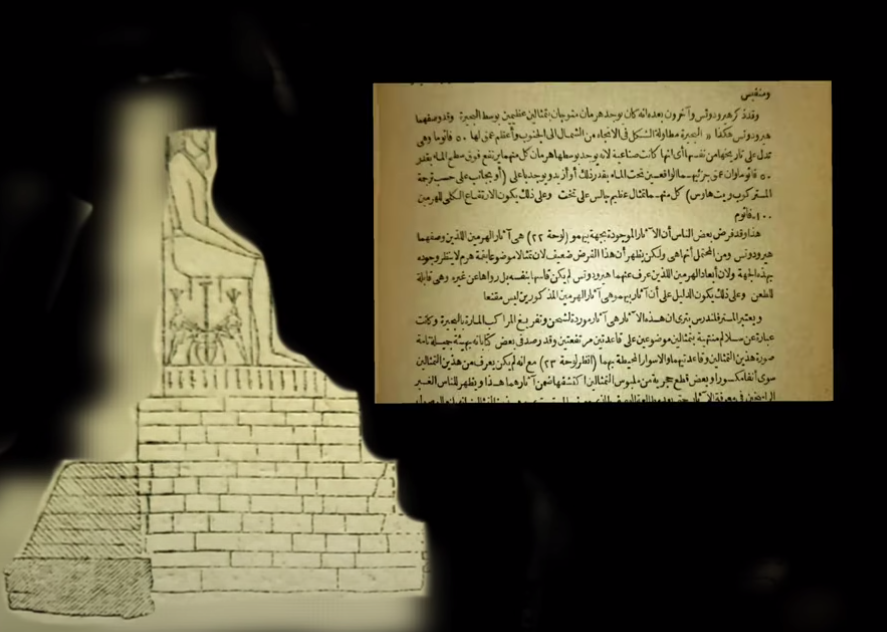 ومنفيس
وقد ذكر هيرودوتس وآخرون بعده انه كان يوجد هرمان متوجان بتمثالين عظيمين بوسط البحيرة وقد وصفهما
هيرودوتس هكذا « البحيرة مطاولة الشكل فى الاتجاه من الشمال الى الجنوب وأعظم عمق لها ٥٠ قاتوما وهى
تدل على تاريخها من نفسها أى انها كانت صناعية لانه يوجد بوسطها هرمان كل منهما يرتفع فوق سطح الماء بقدر
٥٠ قاتوما وان عمق جزئيهما الواقعين تحت الماء بقدر ذلك أو أزيد ويوجد بأعلى (أو بجانب على حسب ترجمة
المستر كوب ويت هاوس) كل منهما تمثال عظيم جالس على تخت وعلى ذلك يكون الارتفاع الكلى للهرمين
١٠٠ قاتوم
هذا وقد فرض بعض الناس أن الآثار الموجودة بجهة بيهمو (لوحة ٢٢) هى آثار الهرمين اللذين وصفهما
هيرودوتس ومن المحتمل أنها هى ولكن يظهر أن هذا الفرض ضعيف لان تمثالا موضوعا بقمة هرم لا ينظر وجوده
بهذه الجهة ولان أبعاد الهرمين اللذين عرف عنهما هيرودوتس لم يكن قاسها بنفسه بل رواها عن غيره وهى قابلة
للطعن وعلى ذلك يكون الدليل على أن آثار بيهمو هى آثار الهرمين المذكورين ليس مقنعا
و يعتبر المستر فلندرس بترى ان هذه الآثار هى آثار موردة لشحن وتفريغ المراكب المارة بالبحيرة وكانت
عبارة عن سلالم منتهية بتمثالين موضوعين على قاعدتين مرتفعتين وقد رصد فى بعض كتاباته بهيئة جميلة تامة
صورة هذين التمثالين وقاعدتيهما والاسوار المحيطة بهما (انظر لوحة ٢٣) مع انه لم يكن يعرف من هذين التمثالين
سوى أنفا مكسورا وبعض قطع حجرية من ملبوس التمثالين اكتشفها ضمن آثارهما هذا ويظهر للناس الغير